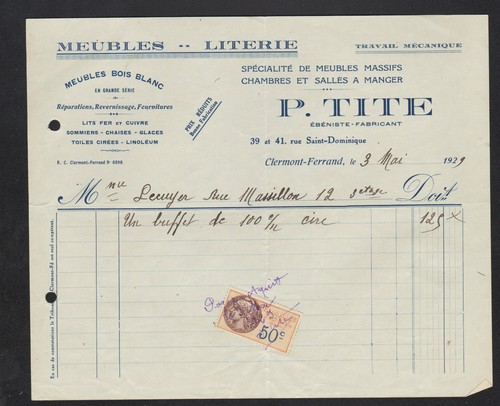 MEUBLES -- LITERIE
TRAVAIL MÉCANIQUE
MEUBLES BOIS BLANC
EN GRANDE SÉRIE
Réparations, Revernissage, Fournitures
LITS FER et CUIVRE
SOMMIERS - CHAISES - GLACES
TOILES CIRÉES - LINOLÉUM
R. C. Clermont-Ferrand N° 6996
PRIX RÉDUITS
Bonne Fabrication
SPÉCIALITÉ DE MEUBLES MASSIFS
CHAMBRES ET SALLES A MANGER
P. TITE
ÉBÉNISTE-FABRICANT
39 et 41, rue Saint-Dominique
Clermont-Ferrand, le 3 Mai 1929
Mme Lecuyer Rue Massillon 12 Doit
Un buffet de 100 c/m cire 125 x
50c
En cas de contestations le Tribunal de Clermont-Fd est seul compétent.